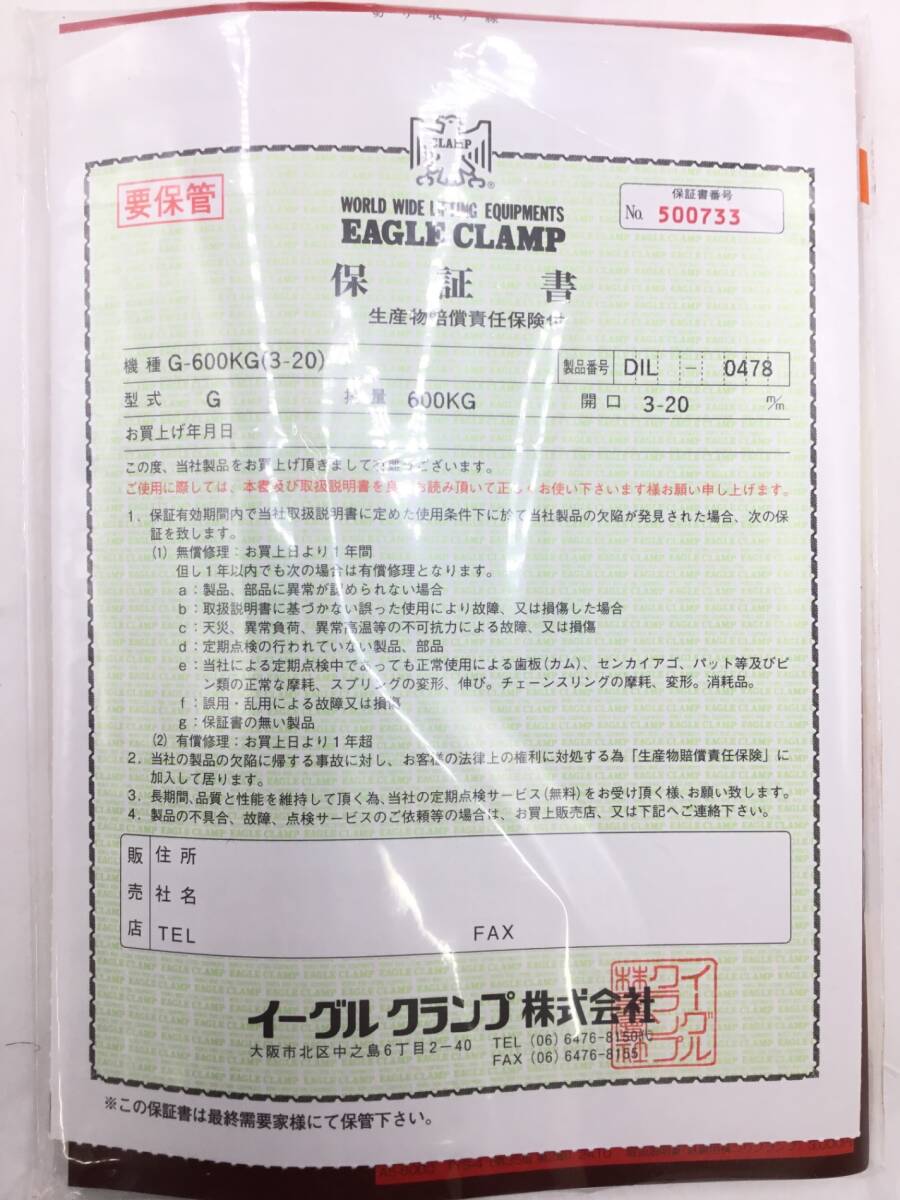 切り取り線
CLAMP
要保管
WORLD WIDE LIFTING EQUIPMENTS
EAGLE CLAMP
保証書番号
No. 500733
保証書
生産物賠償責任保険付
機種 G-600KG(3-20) 製品番号 DIL - 0478
型式 G 量 600KG 開口 3-20 m/m
お買上げ年月日
この度、当社製品をお買上げ頂きまして有難うございます。
ご使用に際しては、本書及び取扱説明書を良くお読み頂いて正しくお使い下さいます様お願い申し上げます。
1. 保証有効期間内で当社取扱説明書に定めた使用条件下に於て当社製品の欠陥が発見された場合、次の保
証を致します。
(1) 無償修理：お買上日より1年間
但し1年以内でも次の場合は有償修理となります。
a：製品、部品に異常が認められない場合
b：取扱説明書に基づかない誤った使用により故障、又は損傷した場合
c：天災、異常負荷、異常高温等の不可抗力による故障、又は損傷
d：定期点検の行われていない製品、部品
e：当社による定期点検中であっても正常使用による歯板(カム)、センカイアゴ、パット等及びピ
ン類の正常な摩耗、スプリングの変形、伸び。チェーンスリングの摩耗、変形。消耗品。
f：誤用・乱用による故障又は損傷
g：保証書の無い製品
(2) 有償修理：お買上日より1年超
2. 当社の製品の欠陥に帰する事故に対し、お客様の法律上の権利に対処する為「生産物賠償責任保険」に
加入して居ります。
3. 長期間、品質と性能を維持して頂く為、当社の定期点検サービス(無料)をお受け頂く様、お願い致します。
4. 製品の不具合、故障、点検サービスのご依頼等の場合は、お買上販売店、又は下記へご連絡下さい。
販売店
住所
社名
TEL FAX
イーグルクランプ株式会社
大阪市北区中之島6丁目2-40
TEL (06) 6476-8150
FAX (06) 6476-8155
イーグルクランプ株式会社
※この保証書は最終需要家様にて保管下さい。